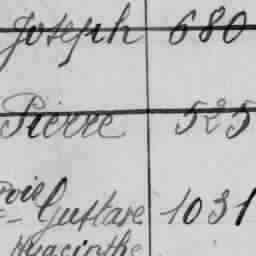 Joseph 680
Pierre 525
Gustave 1031
Hyacinthe